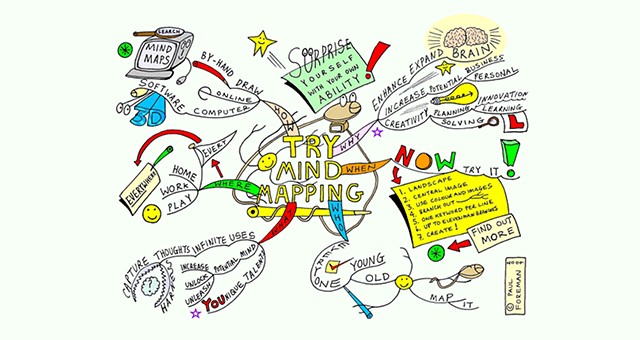 SEARCH
MIND
MAPS
SOFTWARE
3D
BY-HAND DRAW
ONLINE
COMPUTER
HOW
SURPRISE
YOURSELF
WITH YOUR OWN
ABILITY
!
ENHANCE EXPAND BRAIN
INCREASE POTENTIAL BUSINESS
PERSONAL
CREATIVITY
PLANNING
INNOVATION
LEARNING
SOLVING
L
WHY
TRY
MIND
MAPPING
WHEN
NOW
TRY IT !
1. LANDSCAPE
2. CENTRAL IMAGE
3. USE COLOUR AND IMAGES
4. BRANCH OUT
5. ONE KEYWORD PER LINE
7. CREATE!
FIND OUT
MORE
EVERY
EVERYWHERE
HOME
WORK
PLAY
WHERE
WHAT
CAPTURE THOUGHTS INFINITE USES
INCREASE POTENTIAL MIND
UNLOCK
UNLEASH
YOUNIQUE TALENT
WHO
EVERYONE
YOUNG
OLD
MAP IT
© PAUL
FOREMAN